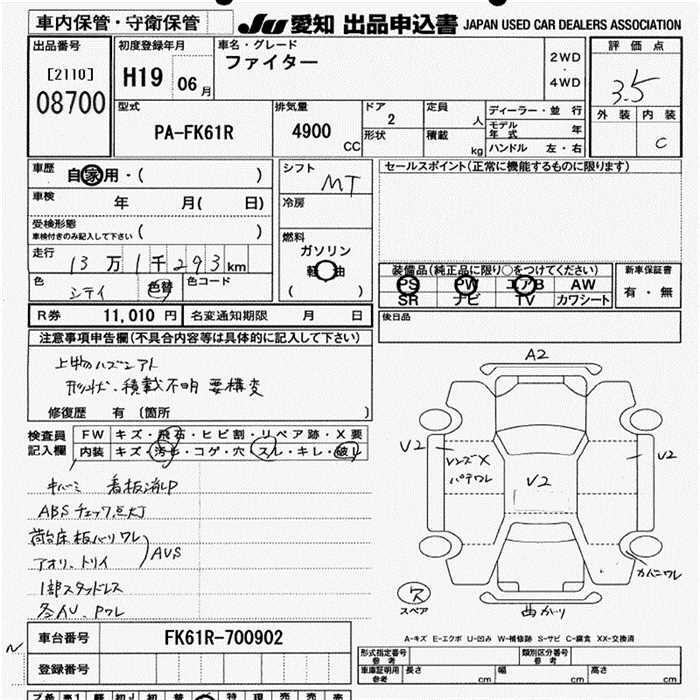 車内保管・守衛保管 JU 愛知 出品申込書 JAPAN USED CAR DEALERS ASSOCIATION
出品番号
[2110]
08700
初度登録年月
H19 06月
車名・グレード
ファイター
2WD
・
4WD
評価点
3.5
外装 内装
C
型式
PA-FK61R
排気量
4900
CC
ドア
2
形状
定員
人
積載
kg
ディーラー・並行
モデル年式 年
ハンドル 左・右
車歴
自家用・( )
車検 年 月( 日)
受検形態
車検付きのみ記入して下さい ( )
走行 13万1千293km
色 シテイ 色替 色コード
シフト
MT
冷房
燃料
ガソリン
軽油
( )
セールスポイント(正常に機能するものに限ります)
装備品(純正品に限り○をつけてください)
PS PW エアB AW
SR ナビ TV カワシート
新車保証書
有・無
R券 11,010円 名変通知期限 月 日
後日品
注意事項申告欄(不具合内容等は具体的に記入して下さい)
上物ハズシアト
形状、積載不明 要構変
修復歴 有 〔箇所 〕
検査員記入欄
FW キズ・飛石・ヒビ割・リペア跡・X要
内装 キズ・汚れ・コゲ・穴・スレ・キレ・破れ
キバミ 看板消しP
ABSチェック点灯
荷台床板バリワレ
アオリ、トリイ
AUS
1部スタッドレス
各AU、Pワレ
A2
V2
レンズX
パテワレ
V2
V2
カバーワレ
曲がり
ス
スペア
A-キズ E-エクボ U-凹み W-補修跡 S-サビ C-腐食 XX-交換済
車台番号 FK61R-700902
登録番号
N
形式指定番号
参考
類別区分番号
参考
車庫証明用
参考
長さ cm 幅 cm 高さ cm